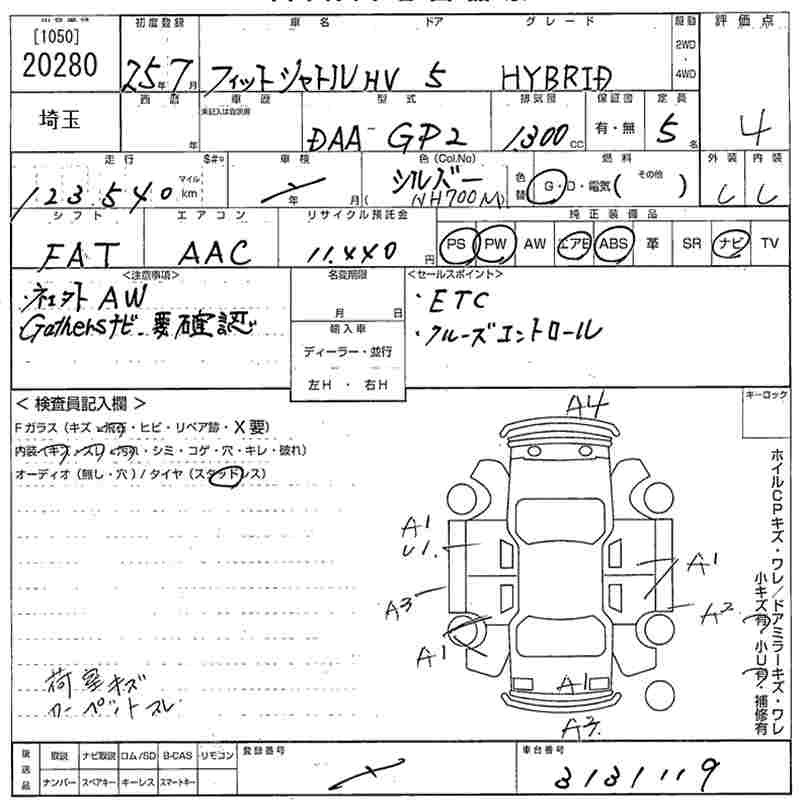 [1050]
20280
初度登録
25年7月
車名
フィットシャトルHV
ドア
5
グレード
HYBRID
駆動
2WD
4WD
評価点
4
埼玉
西暦
年
車歴
未記入は自家用
型式
DAA GP2
排気団
1,300cc
保証団
有・無
定員
5名
走行
123,540
マイル
km
S#
車検
年 月
色 (Col.No)
シルバー
(NH700M)
色替
燃料
G・D・電気( その他 )
外装 内装
し し
シフト
FAT
エアコン
AAC
リサイクル預託金
11,440円
純正装備品
PS PW AW エアB ABS 革 SR ナビ TV
<注意事項>
・社外AW
Gathersナビ 要確認
名変期限
月 日
輸入車
ディーラー・並行
左H・右H
<セールスポイント>
・ETC
・クルーズコントロール
<検査員記入欄>
Fガラス(キズ・飛石・ヒビ・リペア跡・X要)
内装(キズ・スレ・汚れ・シミ・コゲ・穴・キレ・破れ)
オーディオ(無し・穴)/タイヤ(スタッドレス)
荷室キズ
カーペットスレ
キーロック
A4
A1
U1
A3
A1
A1
A2
A1
A3
ホイルCPキズ・ワレ/ドアミラーキズ・ワレ
小キズ有・小U有・補修有
後送品
取説 ナビ取説 ロム/SD B-CAS リモコン
ナンバー スペアキー キーレス スマートキー
登録番号
車台番号
3131119